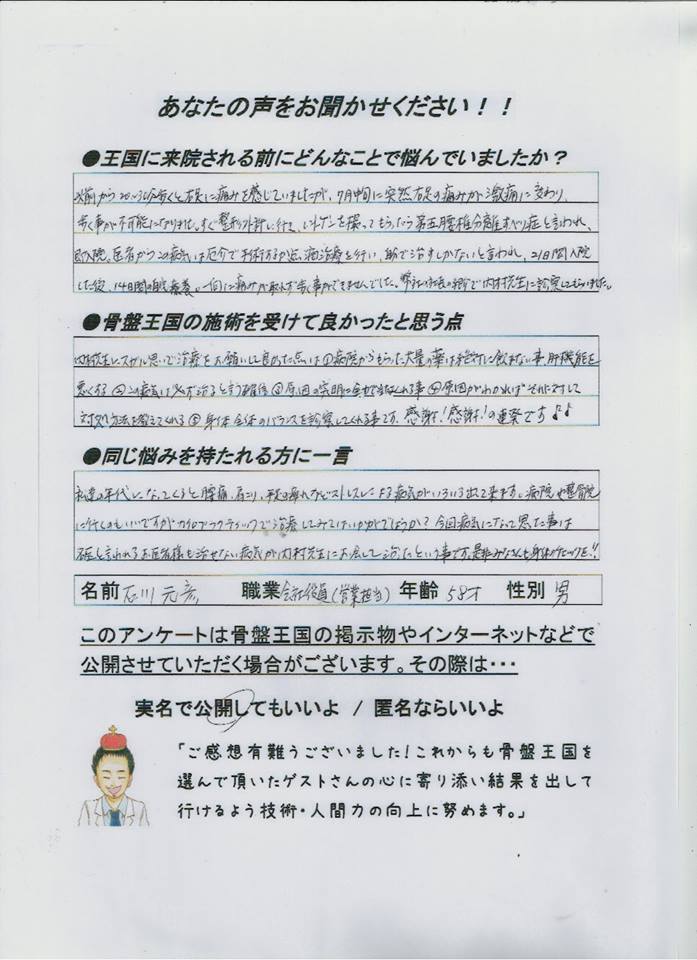 あなたの声をお聞かせください！！
●王国に来院される前にどんなことで悩んでいましたか？
以前から20分くらい歩くと右足に痛みを感じていましたが、7月中旬に突然右足の痛みが激痛に変わり、
歩く事が不可能になりました。すぐ整形外科に行って、レントゲンを撮ってもらったら第五腰椎分離すべり症と言われ、
即入院。医者からこの病気は厄介で手術するか点滴治療を行い、自分で治すしかないと言われ、21日間入院
した後、14日間の自宅療養。一向に痛みが取れず歩く事ができませんでした。弊社の社長の紹介で内村先生に診察してもらいました。
●骨盤王国の施術を受けて良かったと思う点
内村先生にスガル思いで治療をお願いして良かった点は①病院からもらった大量の薬は絶対に飲まない事、肝機能を
悪くする②この病気は必ず治ると言う確信③原因の究明に全力で当ってくれる事④原因がわかればそれに対して
対処方法を教えてくれる⑤身体全体のバランスを診察してくれる事です。感謝！感謝！の連発です♪♪
●同じ悩みを持たれる方に一言
私達の年代になってくると腰痛、肩こり、手足の痺れなどストレスによる病気がいろいろ出て来ます。病院や整骨院
に行くのもいいですがカイロプラクティックで治療してみてはいかがでしょうか？今回病気になって思った事は
名医と言われるお医者様も治せない病気が内村先生にお会して治ったという事です。是非みなさんも身体のチェックを!!
名前 石川 元彦 職業 会社役員(営業担当) 年齢 58才 性別 男
このアンケートは骨盤王国の掲示物やインターネットなどで
公開させていただく場合がございます。その際は・・・
実名で公開してもいいよ / 匿名ならいいよ
「ご感想有難うございました！これからも骨盤王国を
選んで頂いたゲストさんの心に寄り添い結果を出して
行けるよう技術・人間力の向上に努めます。」